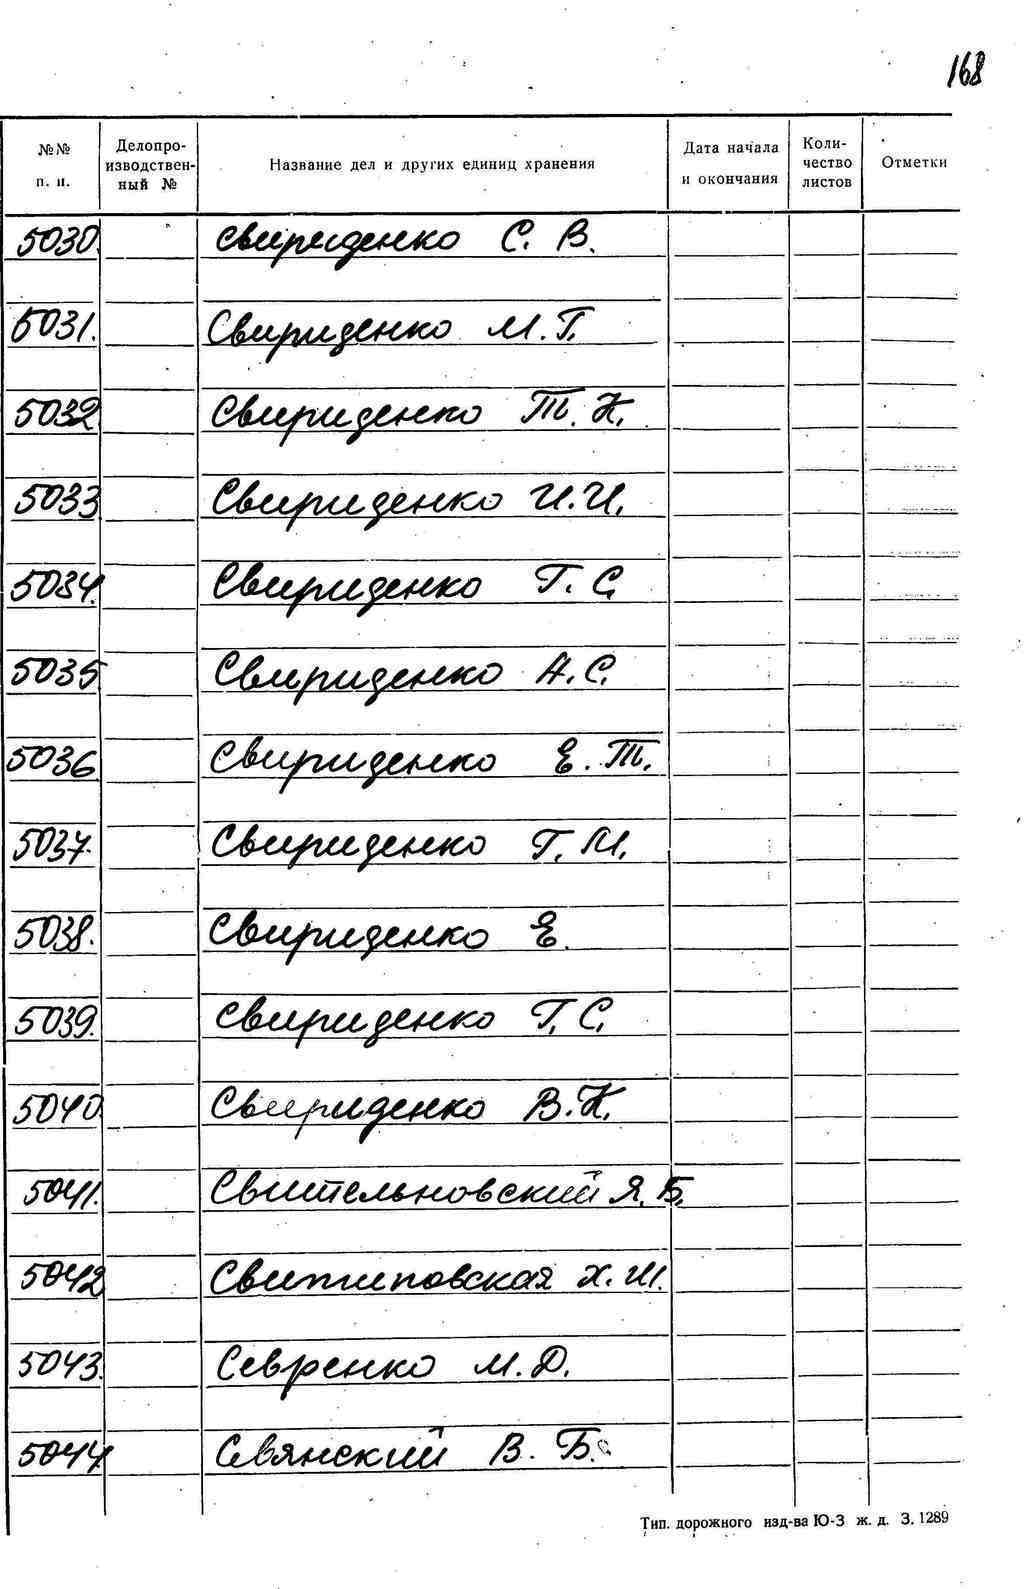 168
№№ п. п. Делопроизводственный № Название дел и других единиц хранения Дата начала и окончания Количество листов Отметки
5030. Свириденко С. В.
5031. Свириденко М. Г.
5032 Свириденко Т. К.
5033 Свириденко И. И.
5034. Свириденко Г. С.
5035 Свириденко А. С.
5036 Свириденко Е. Т.
5037. Свириденко Г. М.
5038. Свириденко Е.
5039. Свириденко Г. С.
5040. Свириденко В. К.
5041. Свительновский Я. Б.
5042 Свитиповская Х. Ш.
5043. Севренко М. Д.
5044 Севянский В. Б.
Тип. дорожного изд-ва Ю-З ж. д. З. 1289